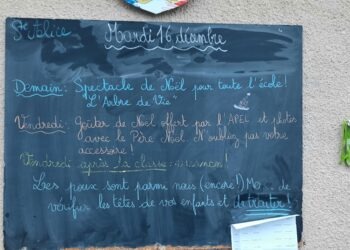 Ste Alice
Mardi 16 décembre
Demain: Spectacle de Noël pour toute l'école!
"L'Arbre de Vie"
Vendredi: Goûter de Noël offert par l'APEL et photos
avec le Père Noël. N'oubliez pas votre
accessoire!
Vendredi après la classe:
Les poux sont parmi nous (encore!) de
vérifier les têtes de vos enfants et de traiter!